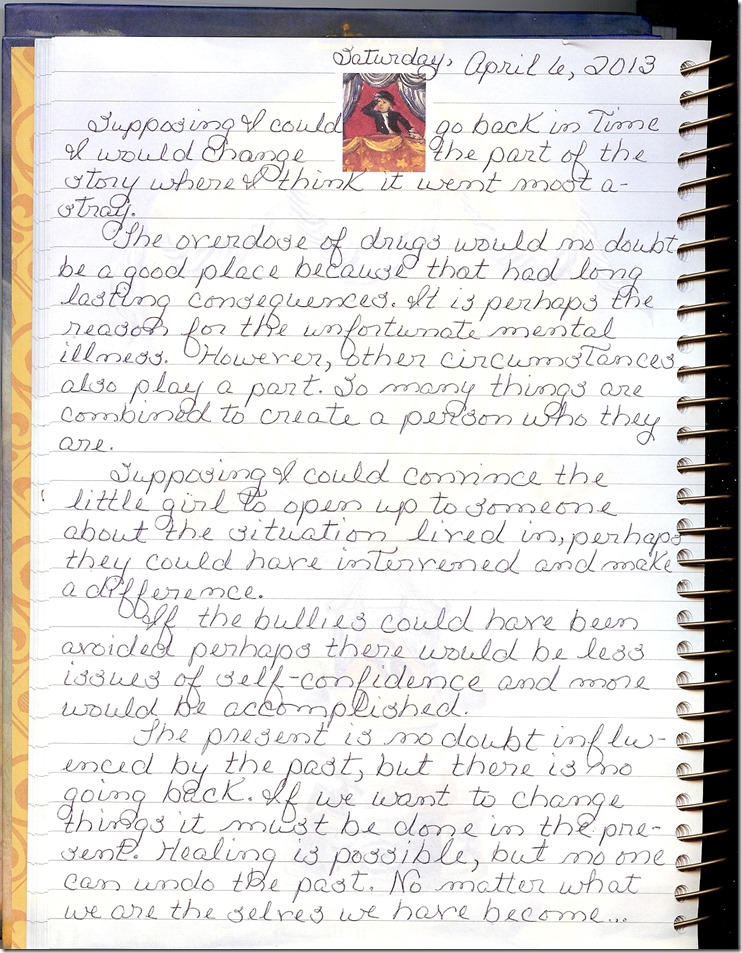 Saturday, April 6, 2013
Supposing I could go back in Time
I would change the part of the
story where I think it went most a-
stray.
The overdose of drugs would no doubt
be a good place because that had long
lasting consequences. It is perhaps the
reason for the unfortunate mental
illness. However, other circumstances
also play a part. So many things are
combined to create a person who they
are.
Supposing I could convince the
little girl to open up to someone
about the situation lived in, perhaps
they could have intervened and make
a difference.
If the bullies could have been
avoided perhaps there would be less
issues of self-confidence and more
would be accomplished.
The present is no doubt influ-
enced by the past, but there is no
going back. If we want to change
things it must be done in the pre-
sent. Healing is possible, but no one
can undo the past. No matter what
we are the selves we have become...